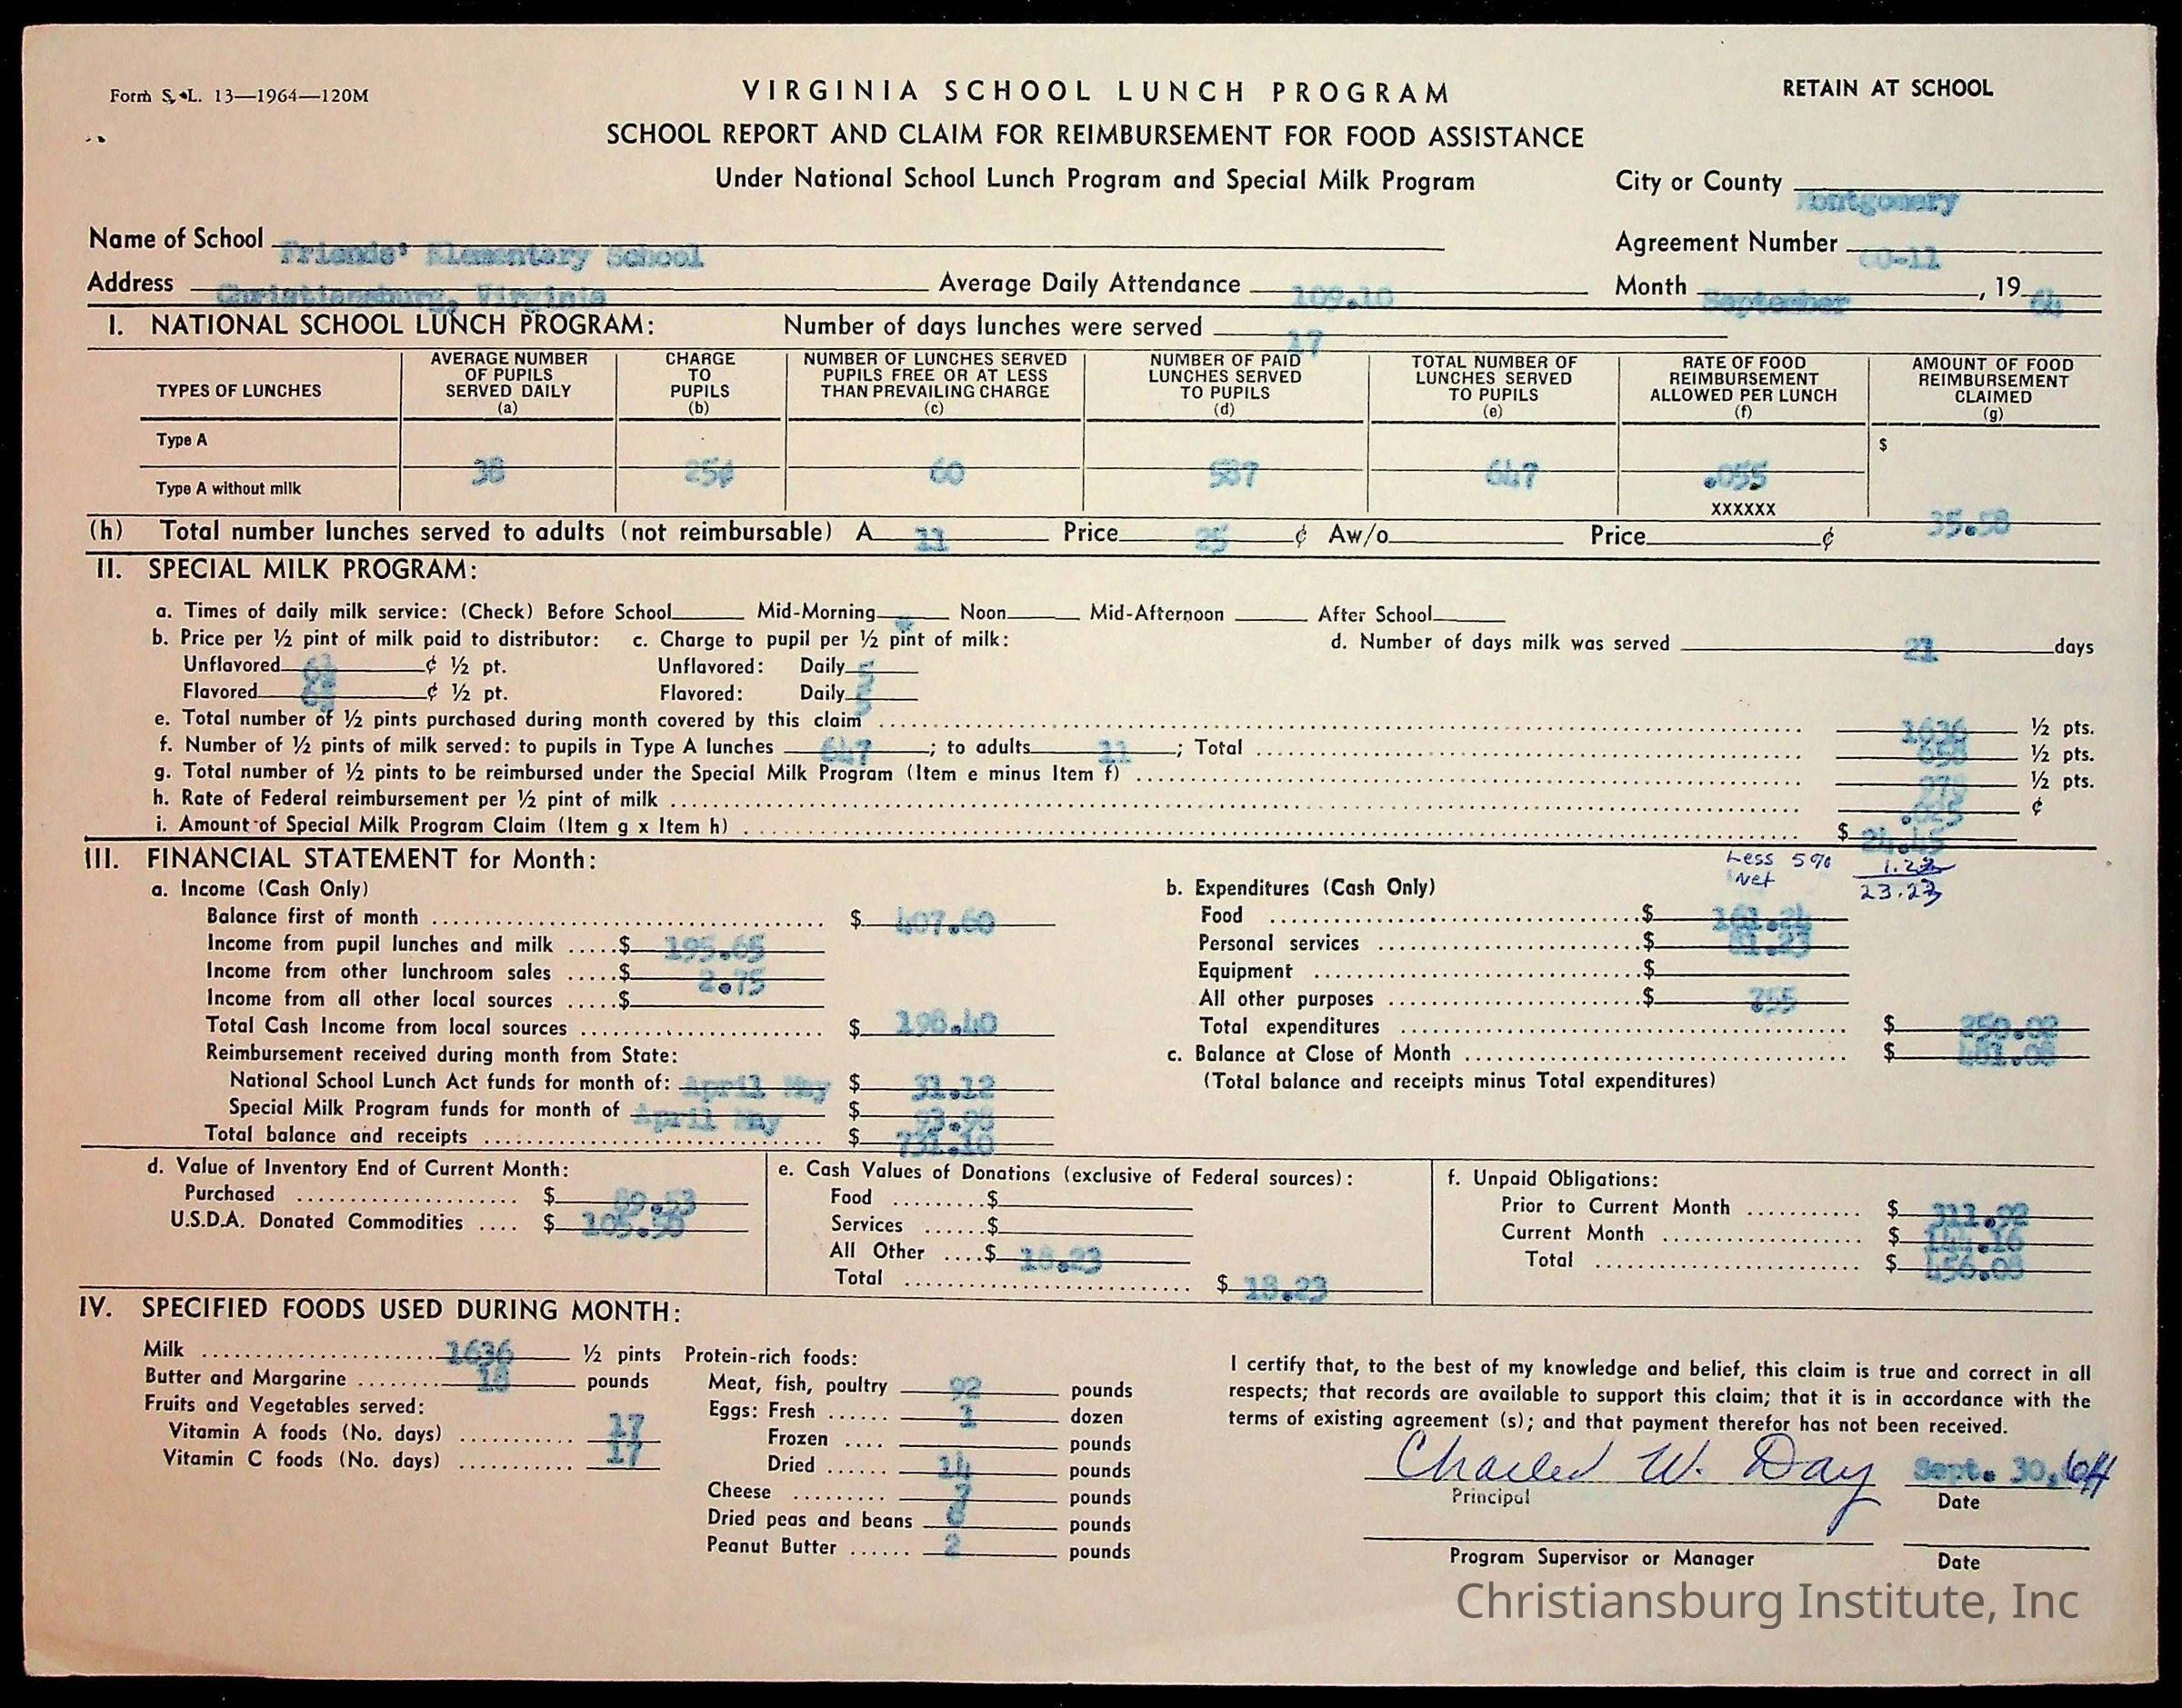 Form S. L. 13—1964—120M
VIRGINIA SCHOOL LUNCH PROGRAM
RETAIN AT SCHOOL
SCHOOL REPORT AND CLAIM FOR REIMBURSEMENT FOR FOOD ASSISTANCE
Under National School Lunch Program and Special Milk Program
City or County Montgomery
Name of School Friends' Elementary School
Agreement Number 60-11
Address Christiansburg, Virginia Average Daily Attendance 109.10 Month September, 19 64
I. NATIONAL SCHOOL LUNCH PROGRAM: Number of days lunches were served 17
TYPES OF LUNCHES
AVERAGE NUMBER OF PUPILS SERVED DAILY (a)
CHARGE TO PUPILS (b)
NUMBER OF LUNCHES SERVED PUPILS FREE OR AT LESS THAN PREVAILING CHARGE (c)
NUMBER OF PAID LUNCHES SERVED TO PUPILS (d)
TOTAL NUMBER OF LUNCHES SERVED TO PUPILS (e)
RATE OF FOOD REIMBURSEMENT ALLOWED PER LUNCH (f)
AMOUNT OF FOOD REIMBURSEMENT CLAIMED (g)
Type A 38 25¢ 60 587 647 .055 $ 35.58
Type A without milk XXXXXX
(h) Total number lunches served to adults (not reimbursable) A 11 Price 25 ¢ Aw/o Price ¢
II. SPECIAL MILK PROGRAM:
a. Times of daily milk service: (Check) Before School Mid-Morning Noon Mid-Afternoon After School
b. Price per ½ pint of milk paid to distributor: c. Charge to pupil per ½ pint of milk: d. Number of days milk was served 21 days
Unflavored ¢ ½ pt. Unflavored: Daily 5
Flavored ¢ ½ pt. Flavored: Daily 5
e. Total number of ½ pints purchased during month covered by this claim 1636 ½ pts.
f. Number of ½ pints of milk served: to pupils in Type A lunches 647; to adults 11; Total 658 ½ pts.
g. Total number of ½ pints to be reimbursed under the Special Milk Program (Item e minus Item f) 978 ½ pts.
h. Rate of Federal reimbursement per ½ pint of milk .025 ¢
i. Amount of Special Milk Program Claim (Item g x Item h) $ 24.45
Less 5% 1.22
Net 23.23
III. FINANCIAL STATEMENT for Month:
a. Income (Cash Only)
Balance first of month $ 407.60
Income from pupil lunches and milk $ 195.65
Income from other lunchroom sales $ 2.75
Income from all other local sources $
Total Cash Income from local sources $ 198.40
Reimbursement received during month from State:
National School Lunch Act funds for month of: April May $ 31.12
Special Milk Program funds for month of April May $ 93.98
Total balance and receipts $ 731.10
b. Expenditures (Cash Only)
Food $ 161.24
Personal services $ 81.23
Equipment $
All other purposes $ 755
Total expenditures $ 250.02
c. Balance at Close of Month $ 481.08
(Total balance and receipts minus Total expenditures)
d. Value of Inventory End of Current Month:
Purchased $ 89.53
U.S.D.A. Donated Commodities $ 105.50
e. Cash Values of Donations (exclusive of Federal sources):
Food $
Services $
All Other $ 18.23
Total $ 18.23
f. Unpaid Obligations:
Prior to Current Month $ 311.92
Current Month $ 144.16
Total $ 456.08
IV. SPECIFIED FOODS USED DURING MONTH:
Milk 1636 ½ pints
Butter and Margarine 18 pounds
Fruits and Vegetables served:
Vitamin A foods (No. days) 17
Vitamin C foods (No. days) 17
Protein-rich foods:
Meat, fish, poultry 92 pounds
Eggs: Fresh 1 dozen
Frozen pounds
Dried 14 pounds
Cheese 7 pounds
Dried peas and beans 6 pounds
Peanut Butter 2 pounds
I certify that, to the best of my knowledge and belief, this claim is true and correct in all
respects; that records are available to support this claim; that it is in accordance with the
terms of existing agreement (s); and that payment therefor has not been received.
Charles W. Day Sept. 30, 64
Principal Date
Program Supervisor or Manager Date
Christiansburg Institute, Inc